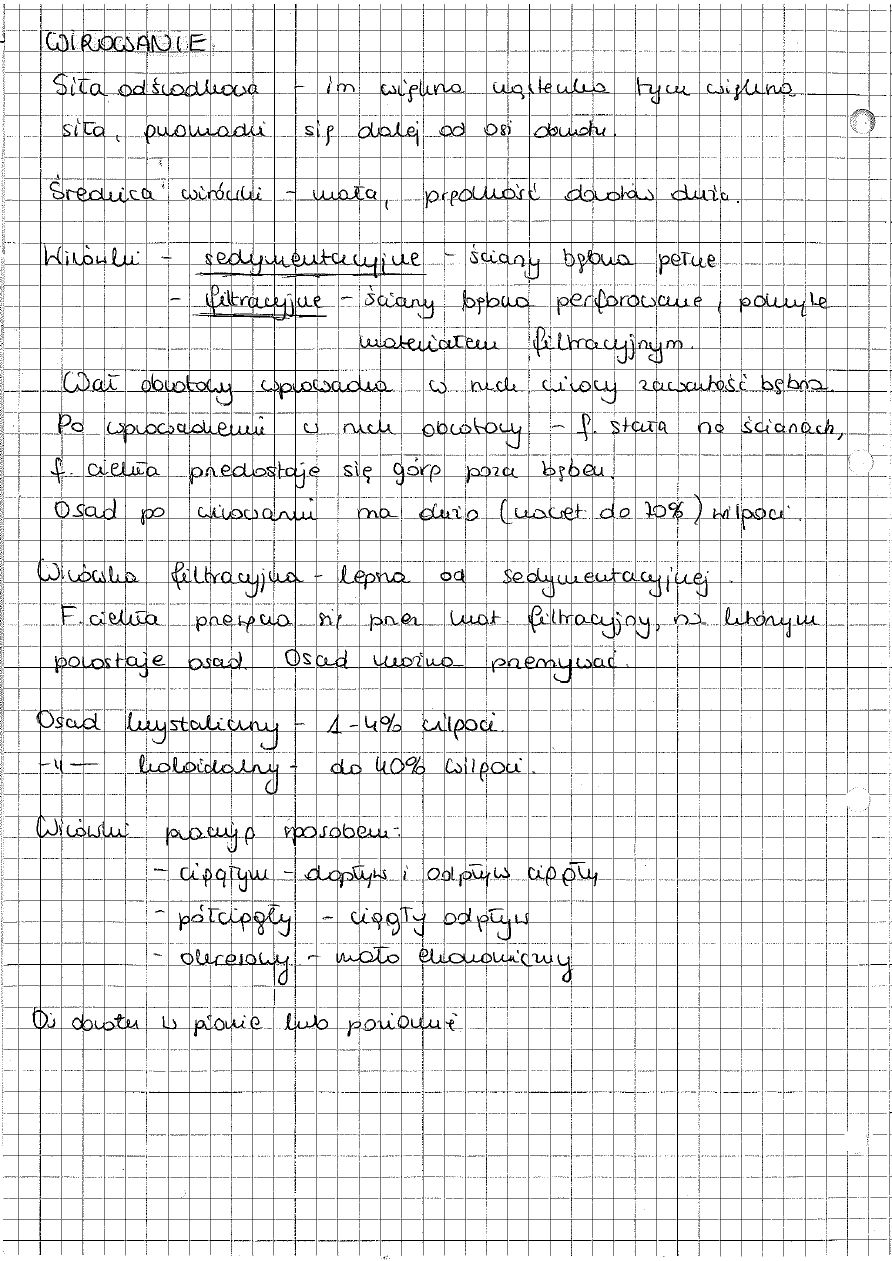 WIROWANIE
Siła odśrodkowa - im większa cząsteczka tym większa
siła, prowadzi się dalej od osi obrotu.
Średnica wirówki - mała, prędkość obrotów duża.
Wirówki - sedymentacyjne - ściany bębna pełne
- filtracyjne - ściany bębna perforowane, pokryte
materiałem filtracyjnym.
Wał obrotowy wprowadza w ruch wirowy zawartość bębna.
Po wprowadzeniu w ruch obrotowy - f. stała na ścianach,
f. ciekła przedostaje się górą poza bęben.
Osad po wirowaniu ma dużo (nawet do 70%) wilgoci.
Wirówka filtracyjna - lepsza od sedymentacyjnej.
F. ciekła przesącza się przez mat. filtracyjny, na którym
pozostaje osad. Osad można przemywać.
Osad krystaliczny - 1-4% wilgoci
-〃- koloidalny - do 40% wilgoci.
Wirówki pracują sposobem:
- ciągłym - dopływ i odpływ ciągły
- półciągły - ciągły odpływ
- okresowy - mało ekonomiczny
Oś obrotu w pionie lub poziomie